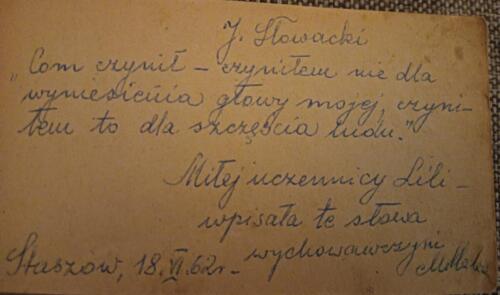 J. Słowacki
"Com czynił – czyniłem nie dla
wyniesienia głowy mojej, czyni-
łem to dla szczęścia ludu."
Miłej uczennicy Lili –
wpisała te słowa
wychowawczyni
Staszów, 18.VI.62r.